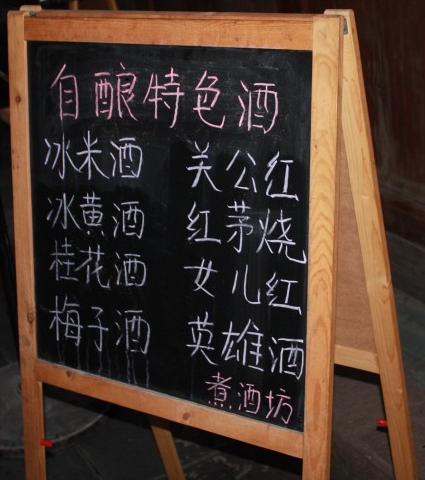 自酿特色酒
冰米酒 关公红
冰黄酒 红茅烧
桂花酒 女儿红
梅子酒 英雄酒
煮酒坊